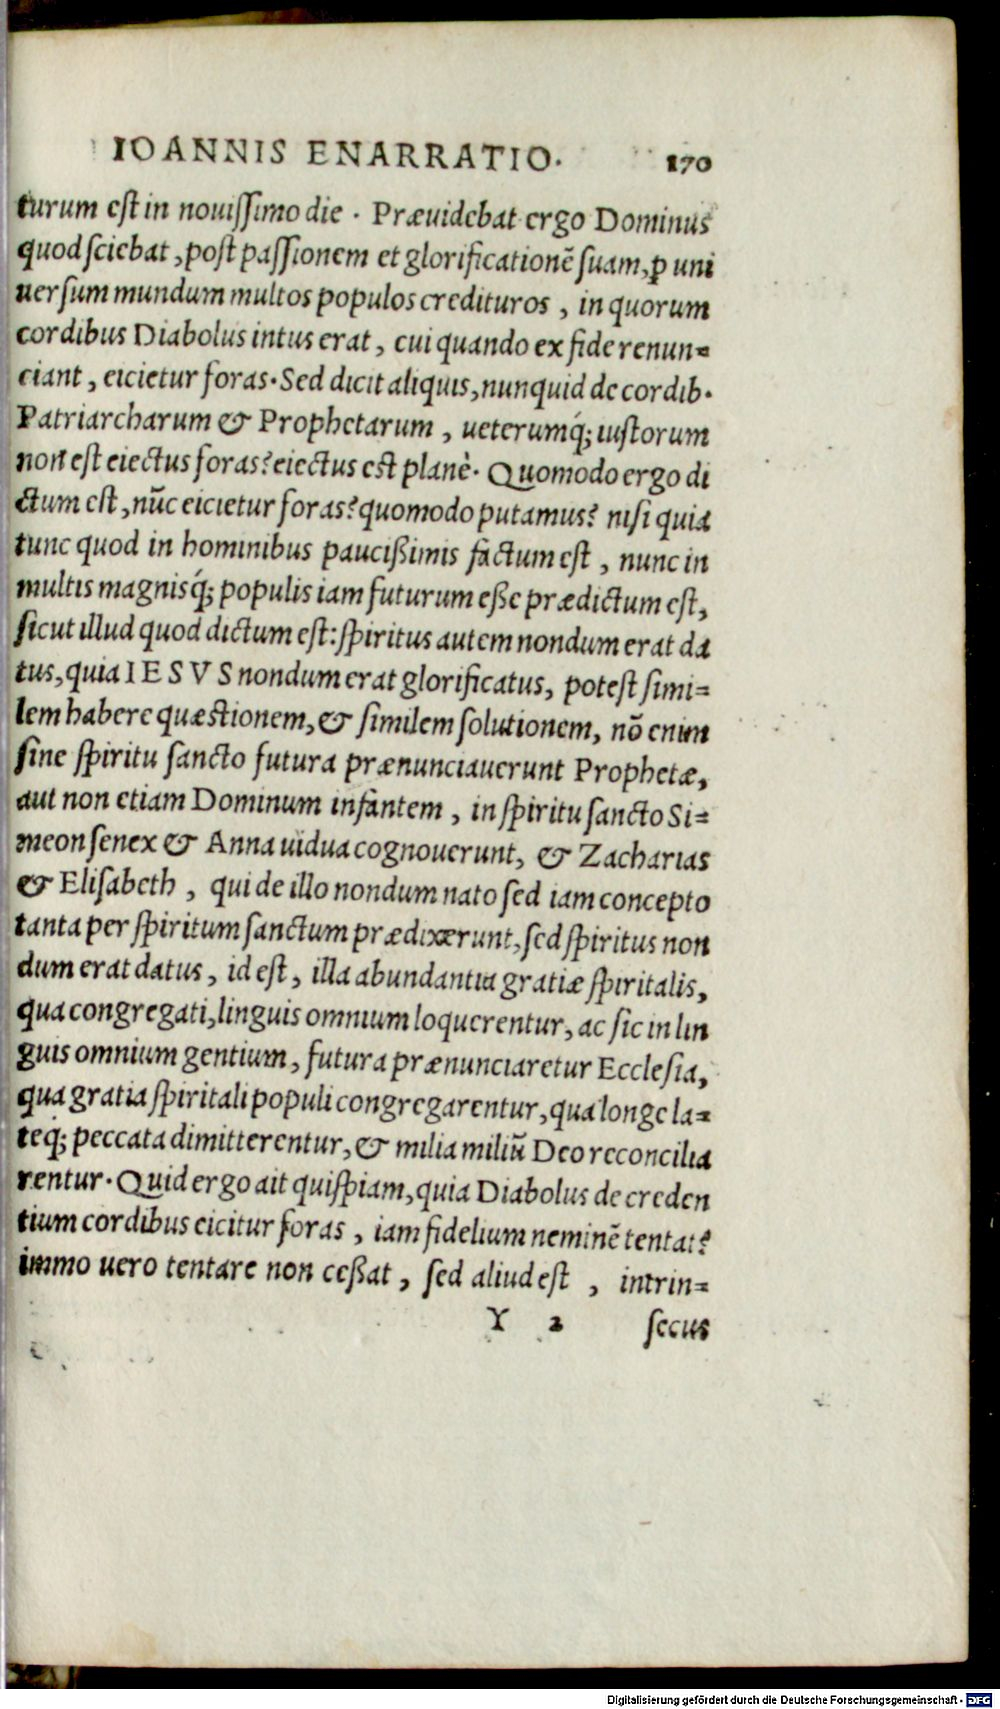 IOANNIS ENARRATIO. 170
turum est in nouissimo die. Præuidebat ergo Dominus
quod sciebat, post passionem et glorificationē suam, ꝑ uni
uersum mundum multos populos credituros, in quorum
cordibus Diabolus intus erat, cui quando ex fide renun=
ciant, eicietur foras. Sed dicit aliquis, nunquid de cordib.
Patriarcharum & Prophetarum, ueterumq́; iustorum
non est eiectus foras? eiectus est planè. Quomodo ergo di
ctum est, nūc eicietur foras? quomodo putamus? nisi quia
tunc quod in hominibus paucißimis factum est, nunc in
multis magnisq́; populis iam futurum eße prædictum est,
sicut illud quod dictum est: spiritus autem nondum erat da
tus, quia IESVS nondum erat glorificatus, potest simi=
lem habere quæstionem, & similem solutionem, nō enim
sine spiritu sancto futura prænunciauerunt Prophetæ,
aut non etiam Dominum infantem, in spiritu sancto Si=
meon senex & Anna uidua cognouerunt, & Zacharias
& Elisabeth, qui de illo nondum nato sed iam concepto
tanta per spiritum sanctum prædixerunt, sed spiritus non
dum erat datus, id est, illa abundantia gratiæ spiritalis,
qua congregati, linguis omnium loquerentur, ac sic in lin
guis omnium gentium, futura prænunciaretur Ecclesia,
qua gratia spiritali populi congregarentur, qua longe la=
teq́; peccata dimitterentur, & milia miliū Deo reconcilia
rentur. Quid ergo ait quispiam, quia Diabolus de creden
tium cordibus eicitur foras, iam fidelium neminē tentat?
immo uero tentare non ceßat, sed aliud est, intrin=
Y 2 secus
Digitalisierung gefördert durch die Deutsche Forschungsgemeinschaft - DFG